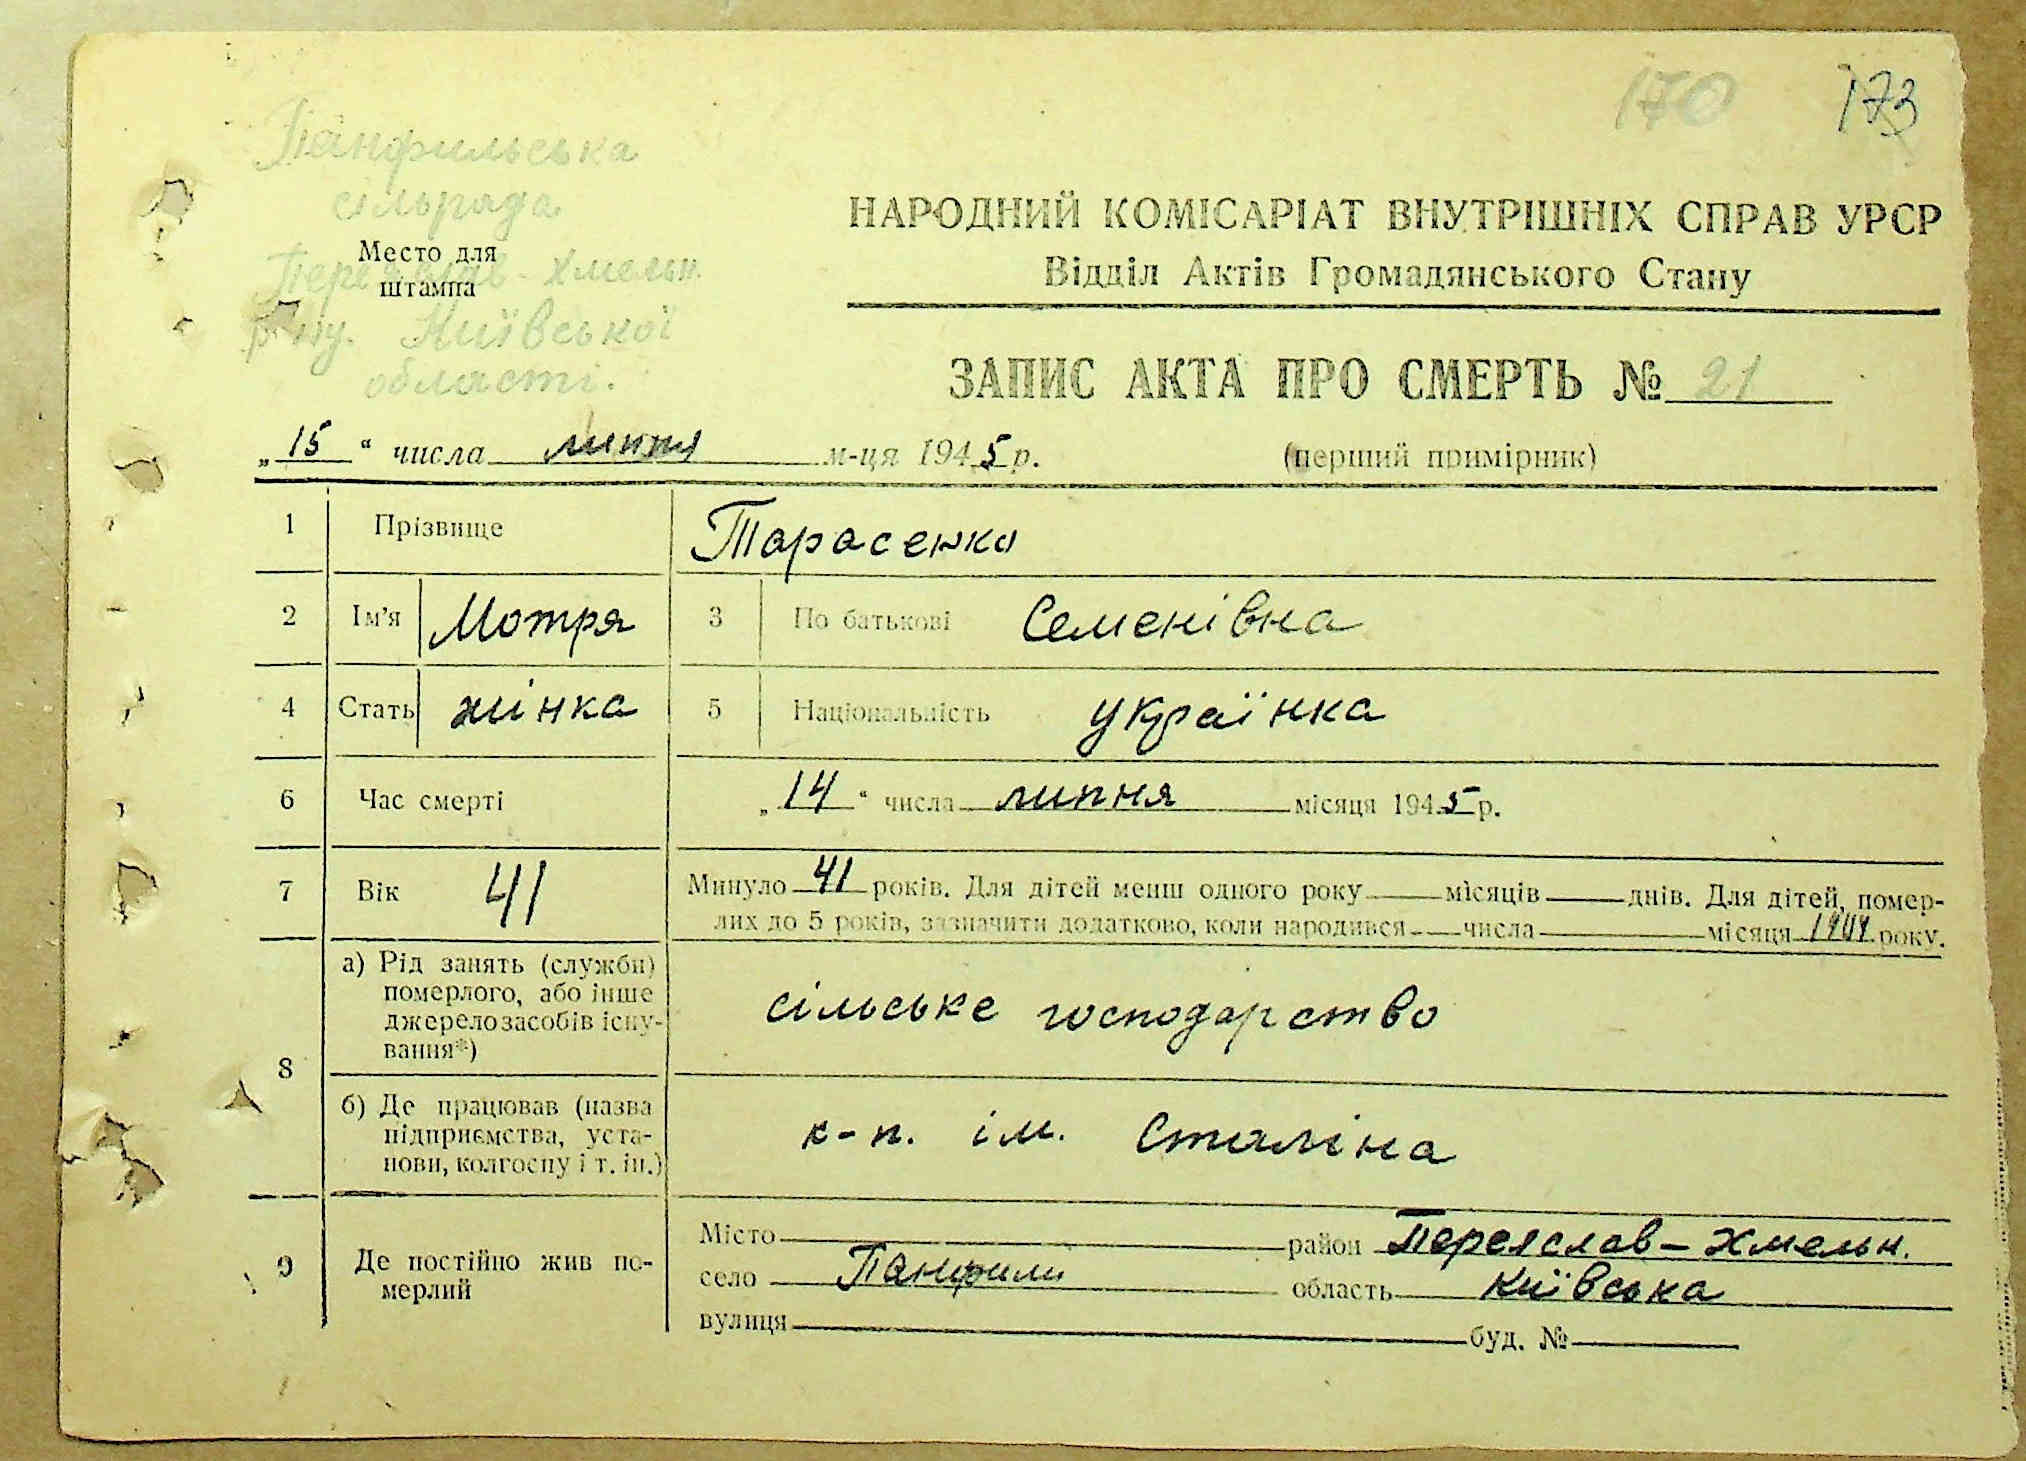 170 173
Панфильська
сільрада
Место для
штампа
Переяслав-Хмельн.
р-ну. Київської
області.
НАРОДНИЙ КОМІСАРІАТ ВНУТРІШНІХ СПРАВ УРСР
Відділ Актів Громадянського Стану
ЗАПИС АКТА ПРО СМЕРТЬ № 21
„15“ числа липня м-ця 1945 р. (перший примірник)
1 Прізвище Тарасенко
2 Ім’я Мотря 3 По батькові Семенівна
4 Стать жінка 5 Національність українка
6 Час смерті „14“ числа липня місяця 1945 р.
7 Вік 41 Минуло 41 років. Для дітей менш одного року місяців днів. Для дітей, помер-
лих до 5 років, зазначити додатково, коли народився числа місяця 1904 року.
8 а) Рід занять (служби)
померлого, або інше
джерело засобів існу-
вання*)
сільське господарство
б) Де працював (назва
підприємства, уста-
нови, колгоспу і т. ін.)
к-п. ім. Сталіна
9 Де постійно жив по-
мерлий
Місто район Переяслав-Хмельн.
село Панфили область Київська
вулиця буд. №